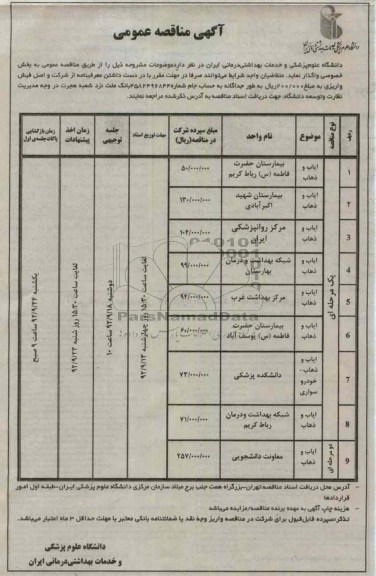 آگهی مناقصه عمومی
دانشگاه علوم‌پزشکی و خدمات بهداشتی‌درمانی ایران در نظر دارد موضوعات مشروحه ذیل را از طریق مناقصه عمومی به بخش
خصوصی واگذار نماید. متقاضیان واجد شرایط می‌توانند صرفا در مهلت مقرر با در دست داشتن معرفینامه از شرکت و اصل فیش
واریزی به مبلغ ۲۰۰/۰۰۰ریال به طور جداگانه به حساب جام شماره بانک ملت نزد شعبه هجرت در وجه مدیریت
نظارت و توسعه دانشگاه، جهت دریافت اسناد مناقصه به آدرس ذکرشده مراجعه نمایند.
ردیف نوع مناقصه موضوع نام واحد مبلغ سپرده شرکت در مناقصه(ریال) مهلت توزیع اسناد جلسه توجیهی زمان اخذ پیشنهادات زمان بازگشایی پاکات جلسه‌ی اول
۱ ایاب و ذهاب بیمارستان حضرت فاطمه (س) رباط کریم ۵۰/۰۰۰/۰۰۰
۲ ایاب و ذهاب بیمارستان شهید اکبرآبادی ۱۳۰/۰۰۰/۰۰۰
۳ ایاب و ذهاب مرکز روانپزشکی ایران ۱۰۲/۰۰۰/۰۰۰
۴ ایاب و ذهاب شبکه بهداشت و درمان بهارستان ۹۹/۰۰۰/۰۰۰
۵ ایاب و ذهاب مرکز بهداشت غرب ۹۲/۰۰۰/۰۰۰
۶ ایاب و ذهاب بیمارستان حضرت فاطمه (س) یوسف آباد ۶۰/۰۰۰/۰۰۰
۷ ایاب و ذهاب- خودرو سواری دانشکده پزشکی ۷۳/۰۰۰/۰۰۰
۸ ایاب و ذهاب شبکه بهداشت و درمان رباط کریم ۷۱/۰۰۰/۰۰۰
۹ ایاب و ذهاب معاونت دانشجویی ۲۵۷/۰۰۰/۰۰۰
یک مرحله ای
دو مرحله ای
لغایت ساعت ۱۵:۳۰ روز چهارشنبه ۹۲/۹/۱۳
دوشنبه ۹۲/۹/۱۸ ساعت ۱۰
لغایت ساعت ۱۵:۳۰ روز شنبه ۹۲/۹/۲۳
یکشنبه ۹۲/۹/۲۴ ساعت ۹ صبح
ParsNamadData
- آدرس محل دریافت اسناد مناقصه:تهران-بزرگراه همت جنب برج میلاد سازمان مرکزی دانشگاه علوم پزشکی ایران-طبقه اول امور
قراردادها
- هزینه چاپ آگهی به عهده برنده مناقصه/مزایده می‌باشد
تذکر:سپرده قابل‌قبول برای شرکت در مناقصه واریز وجه نقد یا ضمانتنامه بانکی معتبر با مهلت حداقل ۳ ماه اعتبار می‌باشد.
دانشگاه علوم پزشکی
و خدمات بهداشتی‌درمانی ایران